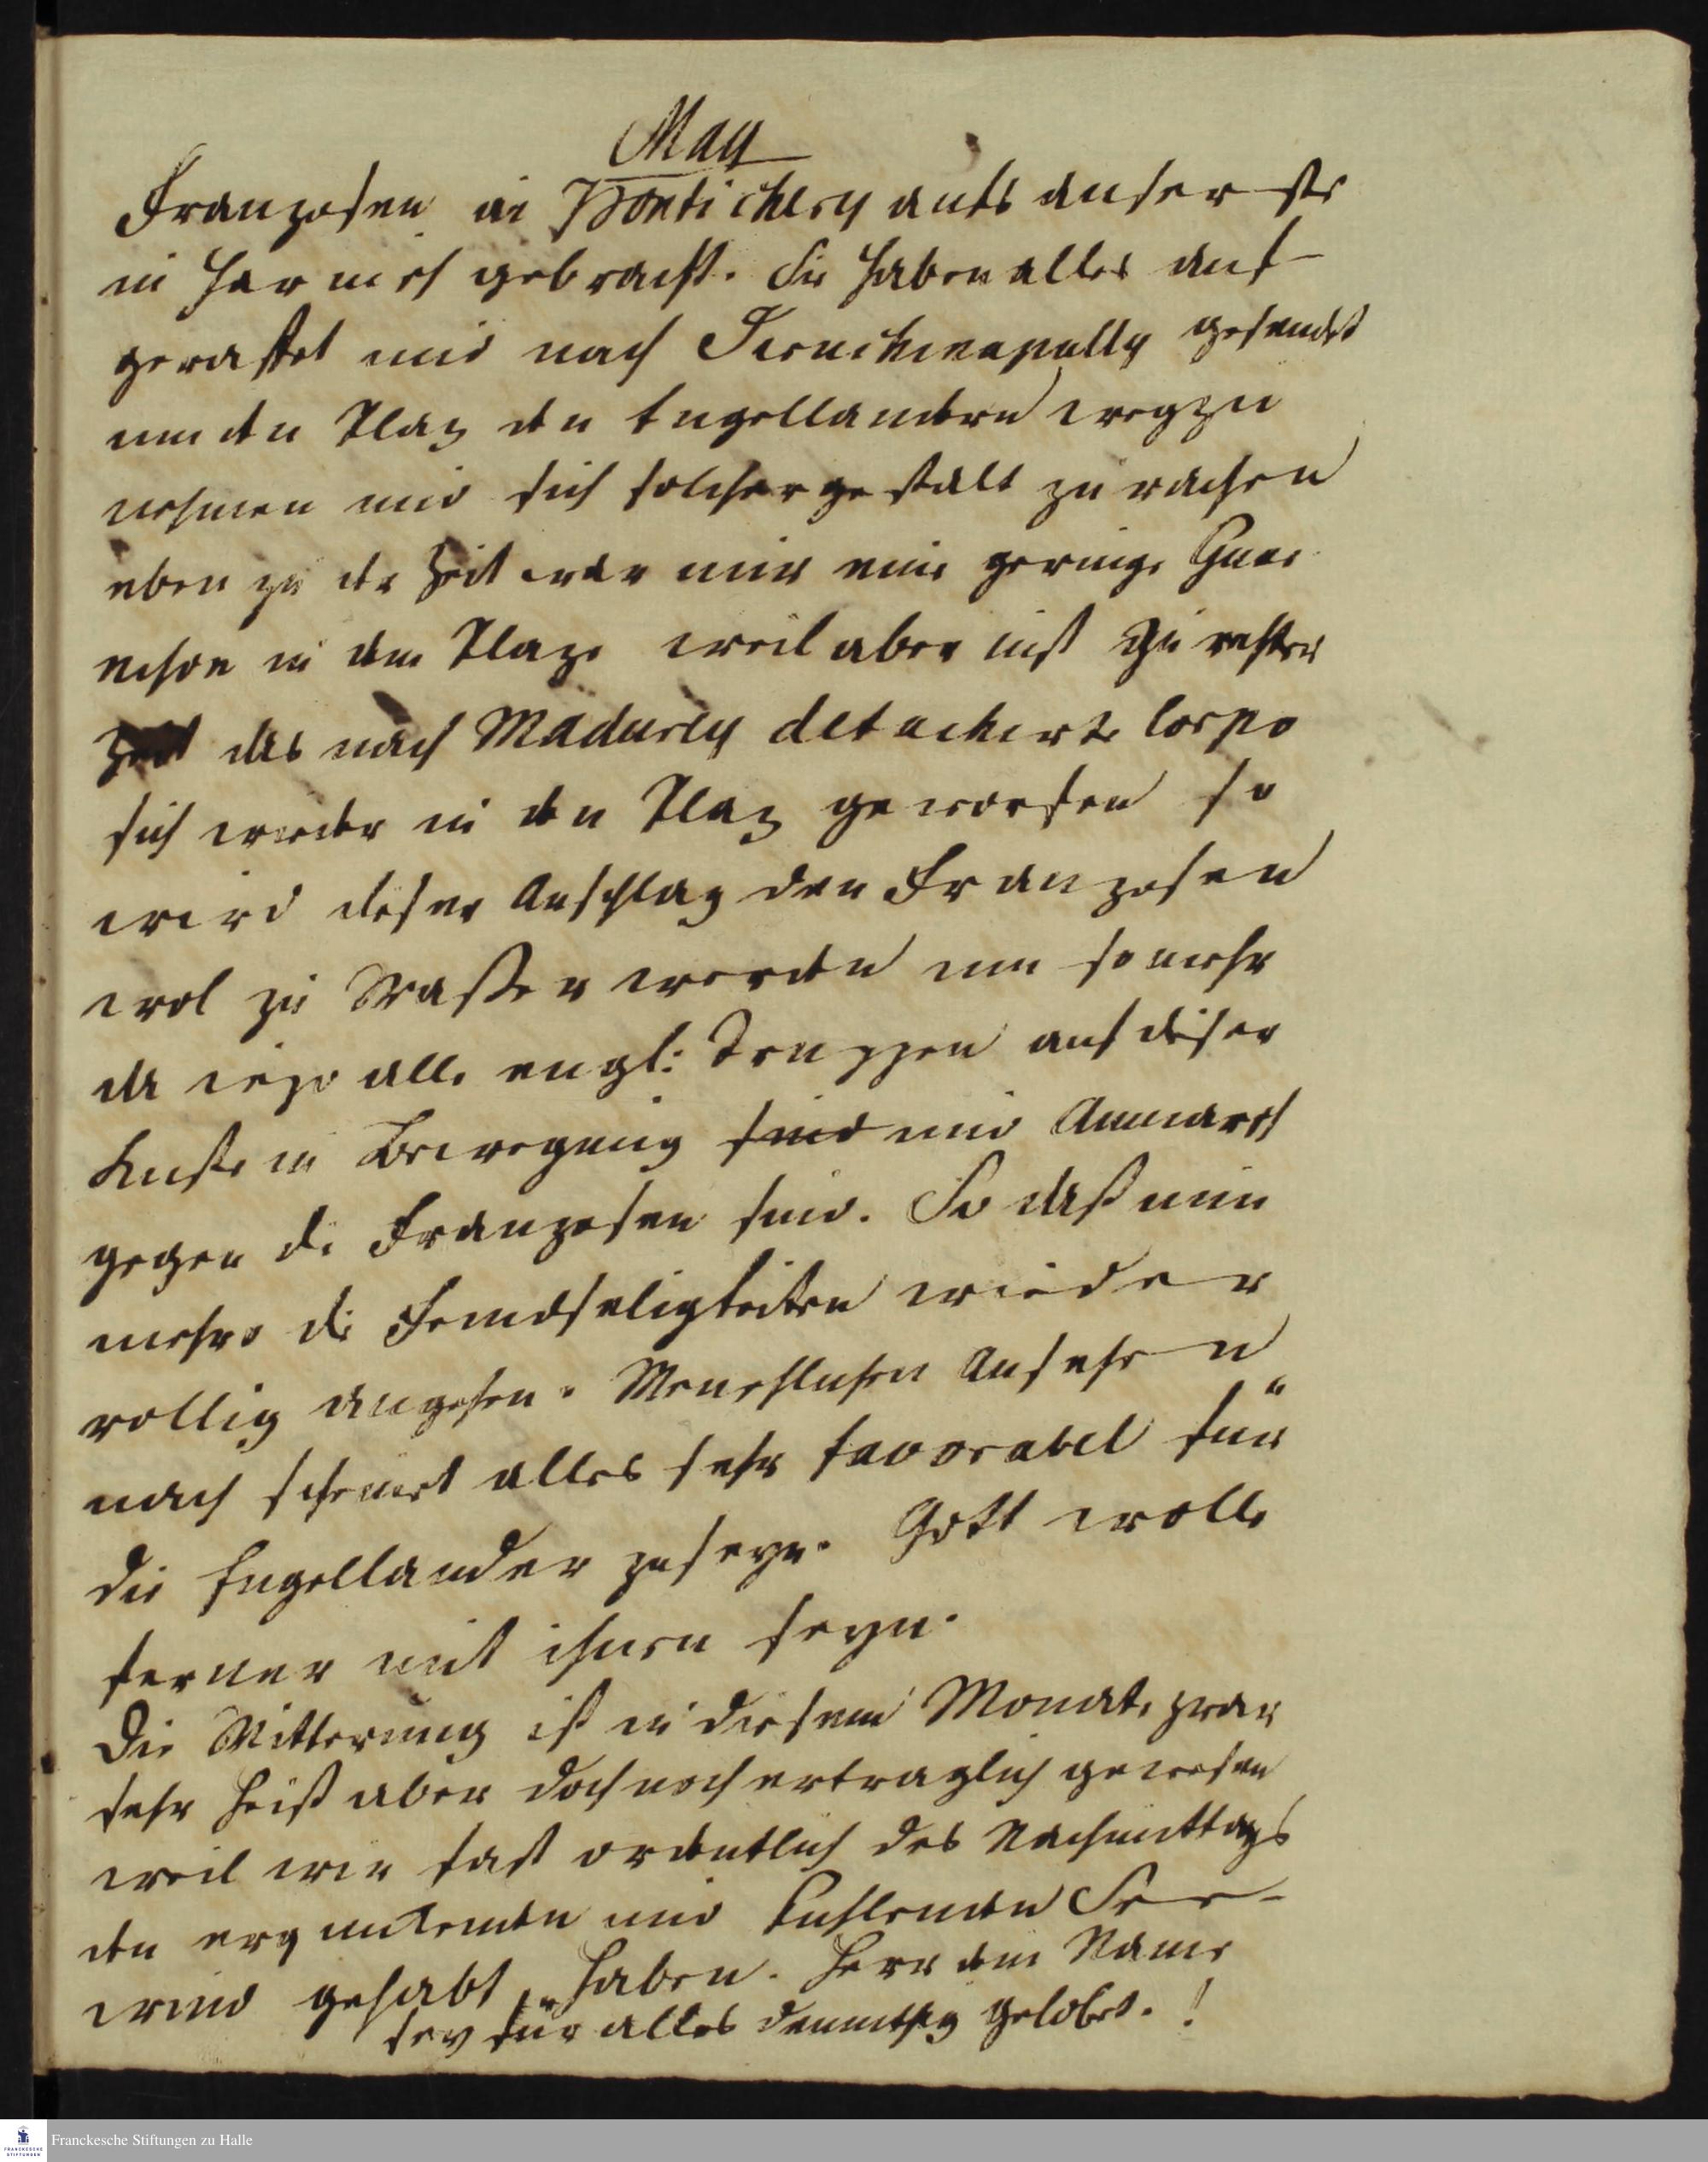 May
Franzosen in Pontichery aufs auserste
in Harnisch gebracht. Sie haben alles auf-
geraffet und nach Teruchenapally gesendet
um den Plaz den Engellandern wegzu
nehmen und sich solchergestalt zu rächen
eben zu der Zeit war nur eine geringe Guar
nison in dem Plaze weil aber itzt zu rechter
Zeit das nach Madurey detachirte Corpo
sich wieder in den Plaz geworfen so
wird dieser Anschlag den Franzosen
wol zu Wasser werden um so mehr
da iezo alle engl: Truppen auf dieser
Kuste in Bewegung sind und Anmarsch
gegen die Franzosen sind. So daß nun
mehro die Feindseligkeiten wieder
vollig angehen. Menschlichen Ansehen
nach scheinet alles sehr favorabel für
die Engellander zu seyn. Gott wolle
ferner mit ihnen seyn.
Die Witterung ist in diesem Monate zwar
sehr heiß aber doch noch ertraglich gewesen
weil wir fast ordentlich des Nachmittags
den erquikenden und kuhlenden See-
wind gehabt haben. Herr dein Name
sey für alles demuthig gelobet.!
Franckesche Stiftungen zu Halle
FRANCKESCHE STIFTUNGEN